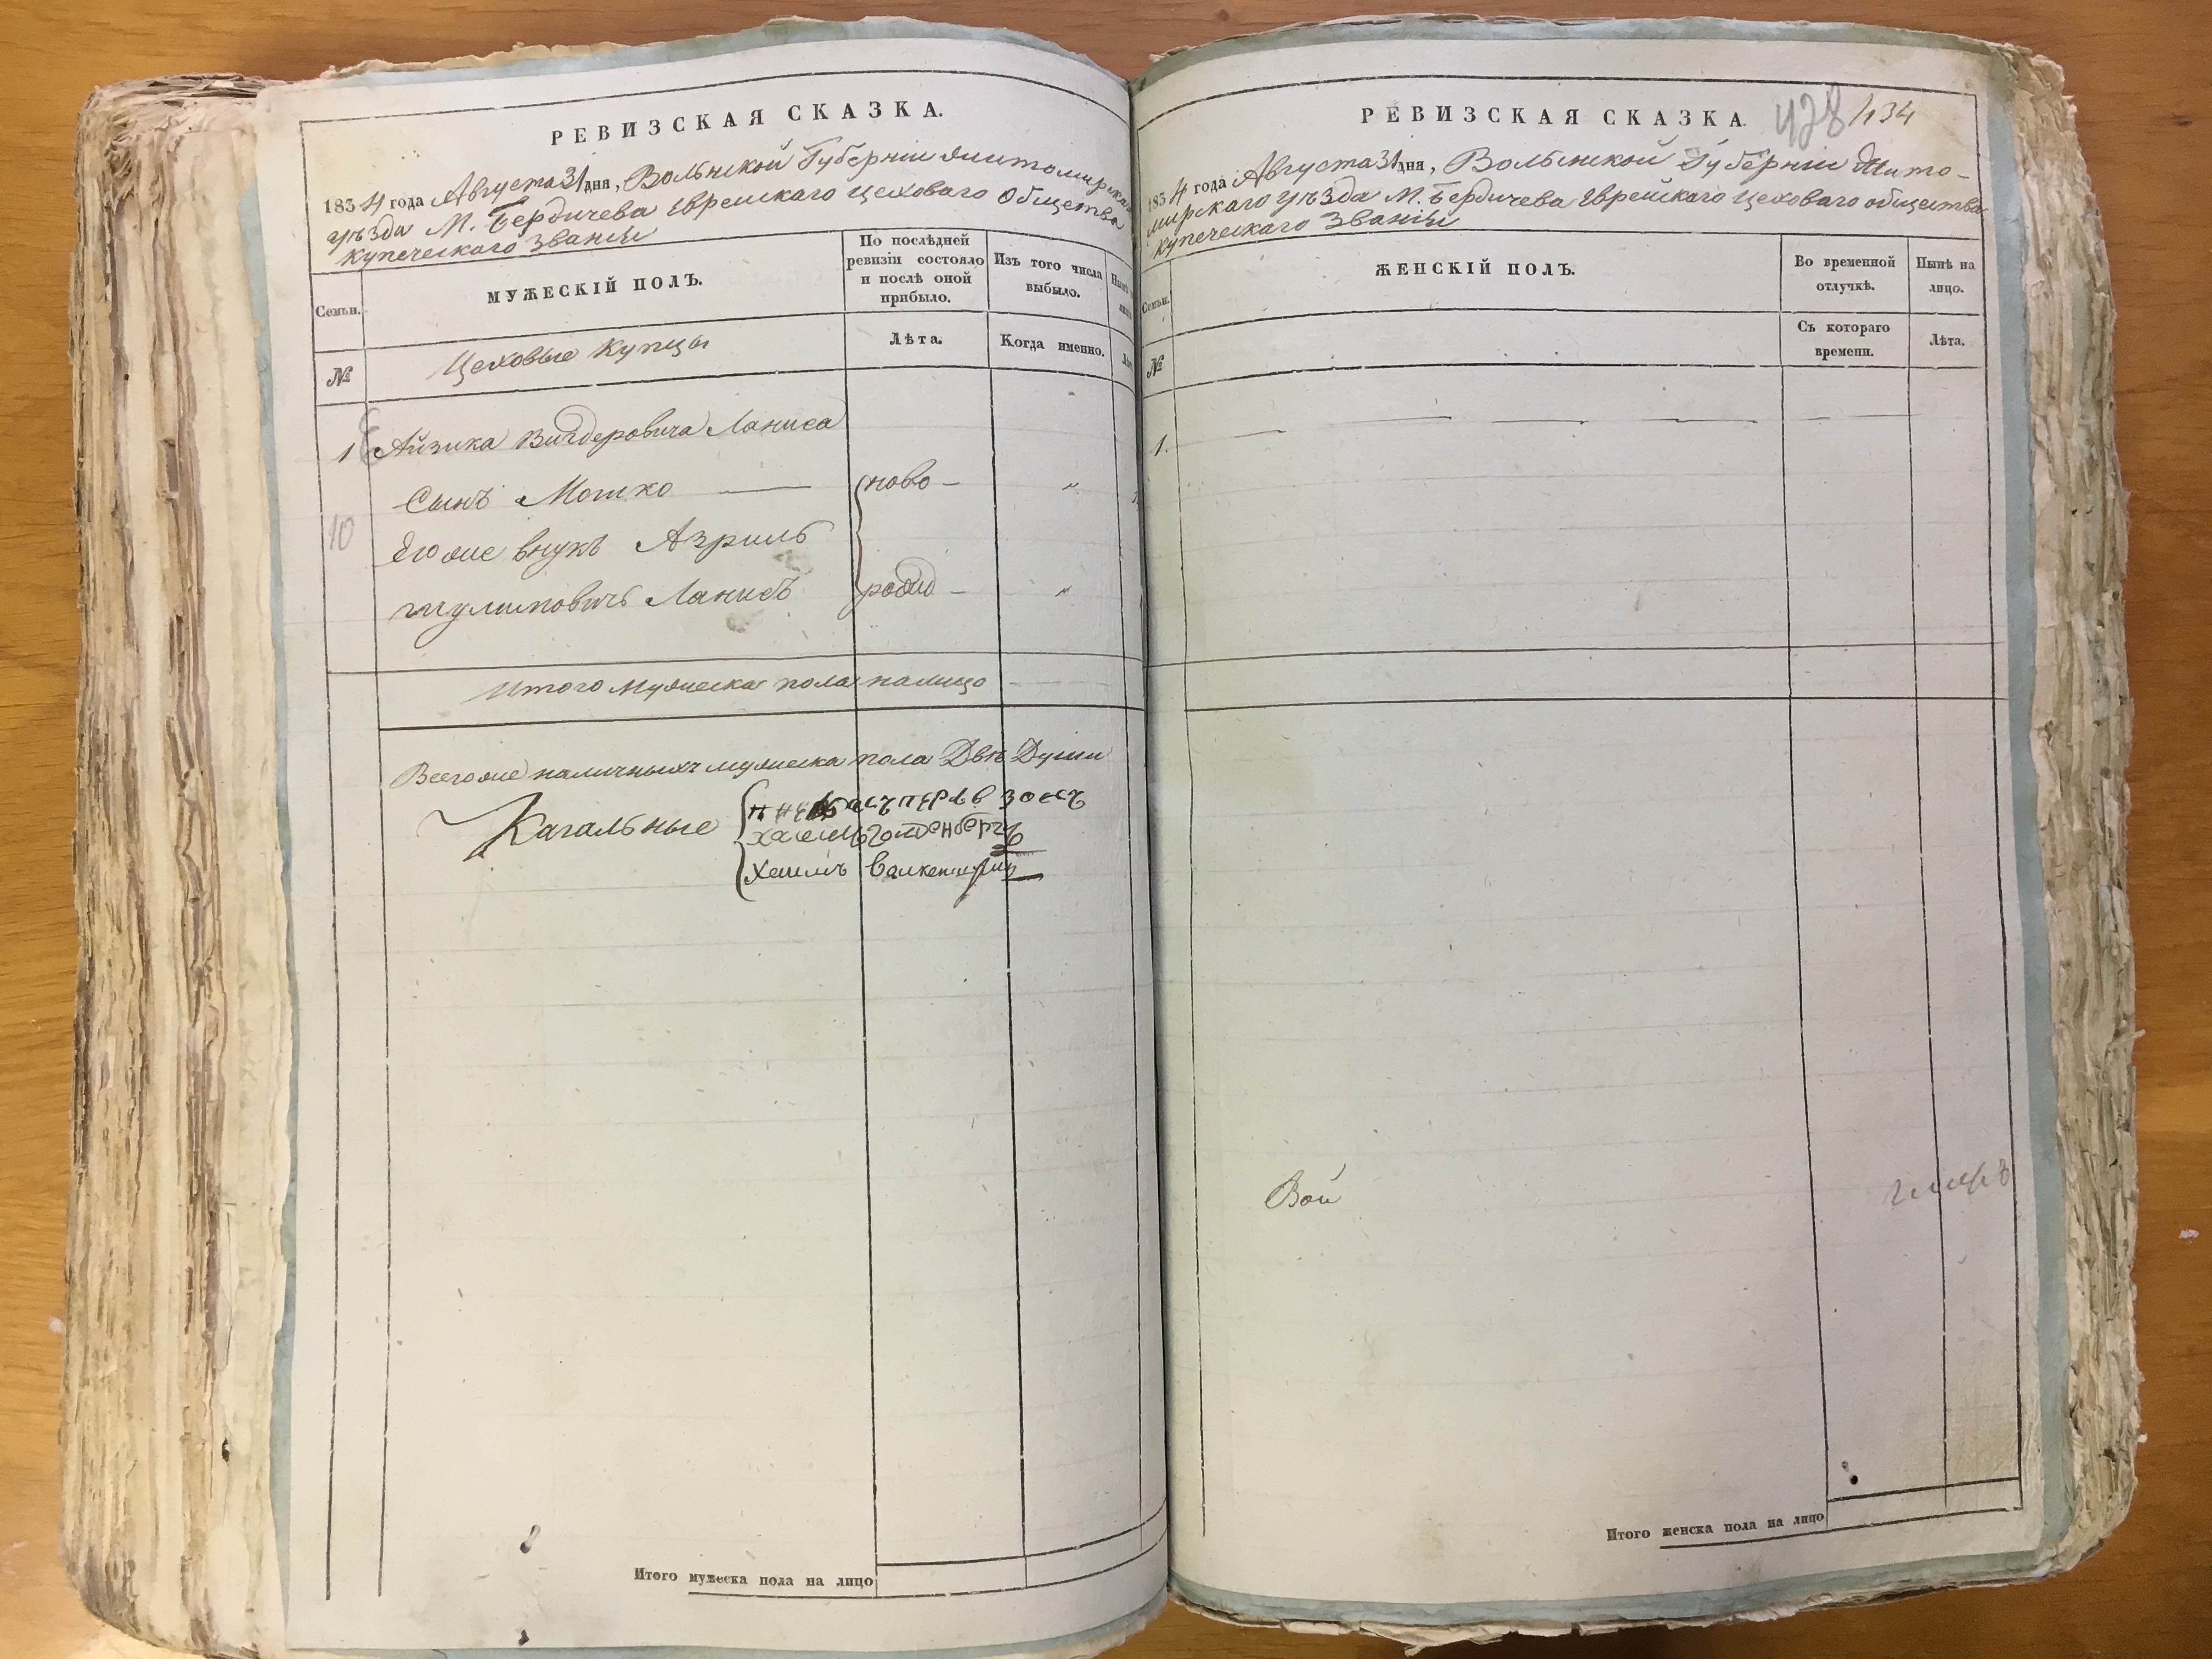 РЕВИЗСКАЯ СКАЗКА.
1834 года Августа 31 дня, Волынской Губерніи Житомирскаго
уѣзда М. Бердичева Еврейскаго цеховаго Общества
купеческаго Званія
Семьи.
МУЖЕСКІЙ ПОЛЪ.
По послѣдней
ревизіи состояло
и послѣ оной
прибыло.
Изъ того числа
выбыло.
№
Цеховые Купцы
Лѣта.
Когда именно.
1 Айзика Вигдеровича Ланиса
Сынъ Мошко — ново —
10
Его же внукъ Азриль
шулимовичъ Ланисъ рожд —
Итого Мужеска пола налицо
Всего же наличныхъ мужеска пола Двѣ Души
Кагальные
Хаимъ
Итого мужеска пола на лицо
РЕВИЗСКАЯ СКАЗКА.
428 434
1834 года Августа 31 дня, Волынской Губерніи Жито-
мирскаго уѣзда М. Бердичева Еврейскаго цеховаго общества
купеческаго Званія
Семьи.
ЖЕНСКІЙ ПОЛЪ.
Во временной
отлучкѣ.
Нынѣ на
лицо.
№
Съ котораго
времени.
Лѣта.
1.
Вой
Итого женска пола на лицо